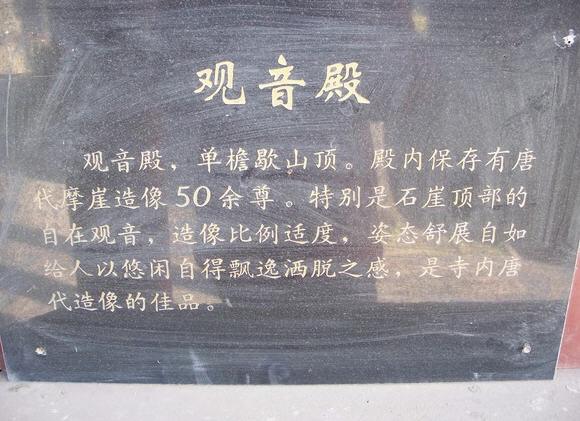 观音殿
观音殿，单檐歇山顶。殿内保存有唐
代摩崖造像50余尊。特别是石崖顶部的
自在观音，造像比例适度，姿态舒展自如
给人以悠闲自得飘逸洒脱之感，是寺内唐
代造像的佳品。